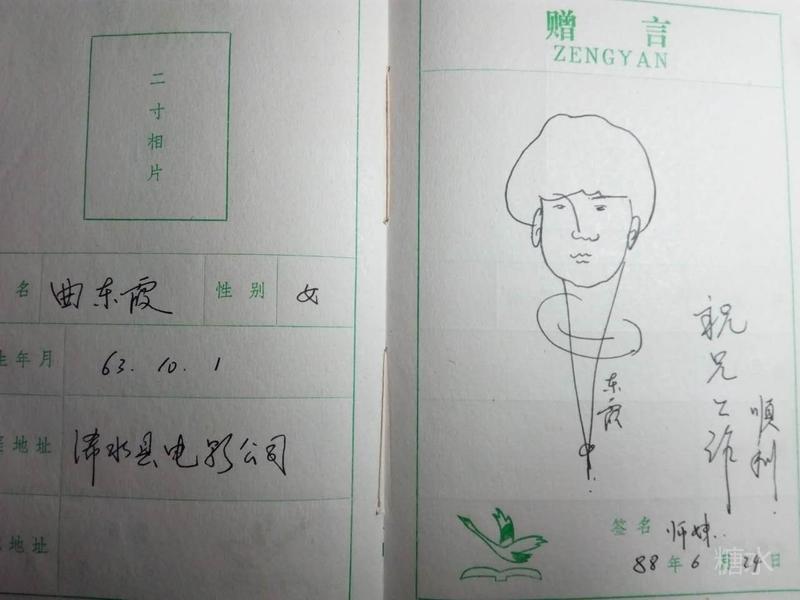 二寸相片
名 曲东霞 性别 女
生年月 63.10.1
庭地址 浠水县电影公司
地址
赠言
ZENGYAN
东霞
祝兄工作
顺利.
签名 师妹..
88年6月24日
糖水